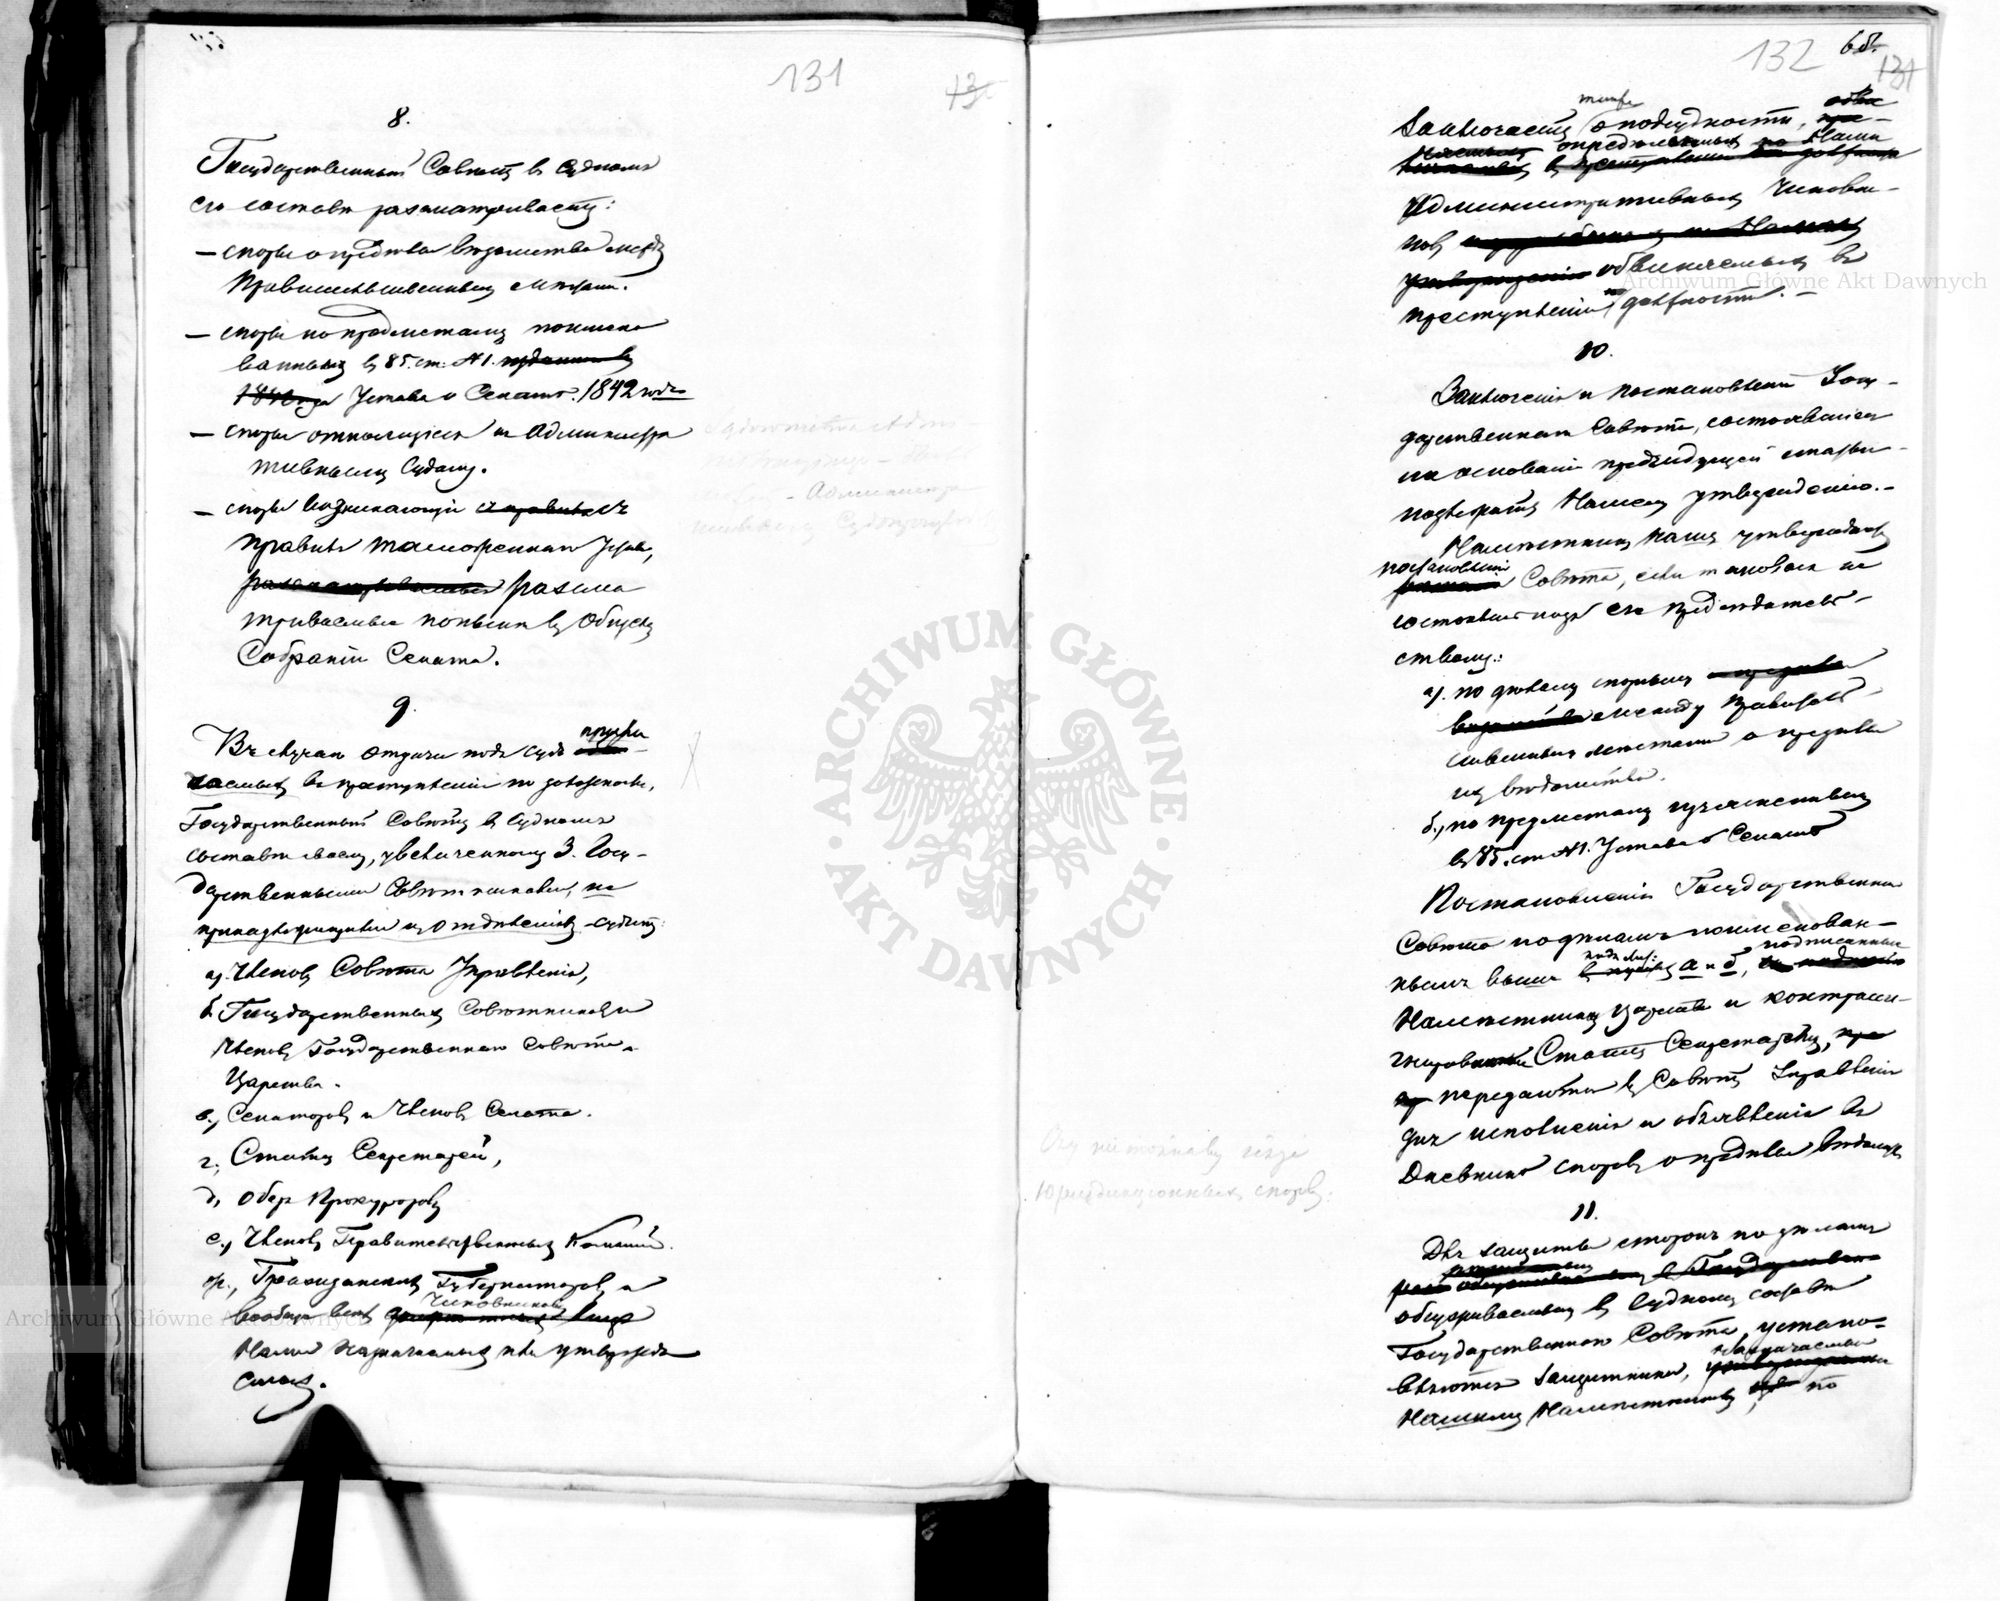 131
8.
Государственный Совѣтъ въ Судномъ
его составѣ разсматриваетъ:
— споры о предѣлахъ вѣдомства между
Правительственными мѣстами.
— споры по предметамъ поимено
ваннымъ въ 85. ст: №1.
Устава о Сенатѣ. 1842 года
— споры относящіеся къ Администра
тивнымъ Судамъ.
— споры возникающіе
правилъ таможеннаго Устава,
разсма
триваемые понынѣ въ Общемъ
Собраніи Сената.
9.
Въ случаѣ отдачи подъ судъ
въ преступленіи по должности,
Государственный Совѣтъ въ Судномъ
составѣ своемъ, увеличенномъ 3. Госу-
дарственными Совѣтниками, не
принадлежащими къ отдѣленію судитъ:
а). Членовъ Совѣта Управленія,
б. Государственныхъ Совѣтниковъ и
Членовъ Государственнаго Совѣта
Царства.
в., Сенаторовъ и Членовъ Сената.
г., Статсъ Секретарей,
д, Оберъ Прокуроровъ
е., Членовъ Правительственныхъ Коммисій.
ж., Гражданскихъ Губернаторовъ и
Чиновниковъ
вообще всѣхъ
Нами назначаемыхъ или утверждае
мыхъ.
132
заключаетъ о подсудности,
опредѣляемыхъ Нами
Административныхъ Чиновни-
ковъ
обвиняемыхъ въ
преступленіи по должности. —
10.
Заключенія и постановленія Госу-
дарственнаго Совѣта, состоявшіеся
на основаніи предъидущей статьи
подлежатъ Нашему утвержденію. —
Намѣстникъ Нашъ утверждаетъ
постановленія
Совѣта, если таковыя не
состоялись подъ его предсѣдатель-
ствомъ:
а). по дѣламъ спорнымъ
между Правитель-
ственными мѣстами о предѣлахъ
ихъ вѣдомства.
б., по предметамъ изъясненнымъ
въ 85. ст №1. Устава о Сенатѣ
Постановленія Государственнаго
Совѣта по дѣламъ поименован-
подписанныя
нымъ выше а и б,
Намѣстникомъ Царства и контраси-
гнированныя Статсъ Секретаремъ,
передаются въ Совѣтъ Управленія
для исполненія и объявленія въ
Дневникѣ споровъ о предѣлахъ вѣдомства
11.
Для защиты сторонъ по дѣламъ
обсуживаемымъ въ Судномъ составѣ
Государственнаго Совѣта, устано-
назначаемые
вляются защитники,
Нашимъ Намѣстникомъ, по
Archiwum Główne Akt Dawnych
Archiwum Główne Akt Dawnych
ARCHIWUM GŁÓWNE
AKT DAWNYCH